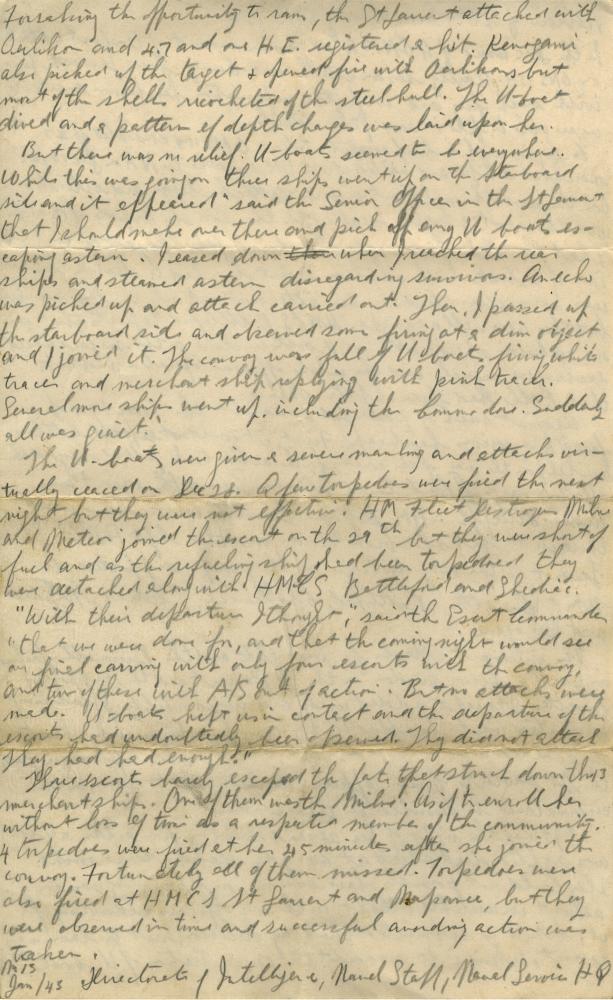 Forsaking the opportunity to ram, the St Laurent attached with
Oerlikon and 4.7 and one H.E. registered a hit. Kenogami
also picked up the target & opened fire with Oerlikons but
most of the shells ricocheted of the steel hull. The U-boat
dived and a pattern of depth charges was laid upon her.
But there was no relief. U-boats seemed to be everywhere.
While this was going on three ships went up on the starboard
side and it appeared" said the Senior Officer in the St Laurent
that I should make over there and pick off any U boats es-
caping astern. I eased down when I reached the rear
ships and steamed astern disregarding survivors. An echo
was picked up and attack carried out. Then, I passed up
the starboard side and observed some firing at a dim object
and I joined it. The convoy was full of U-boats firing white
tracer and merchant ship replying with pink tracer.
Several more ships went up, including the Commodore. Suddenly
all was quiet."
The U-boats were given a severe mauling and attacks vir-
tually ceased on Dec 28. A few torpedoes were fired the next
night but they were not effective. HM Fleet Destroyers Milne
and Meteor joined the escort on the 29th but they were short of
fuel and as the refueling ship had been torpedoed they
were detached along with HMCS Battleford and Shediac.
"With their departure I thought," said the Escort Commander
"that we were done for, and that the coming night would see
our final carving with only four escorts with the convoy,
and two of these with A/S out of action. But no attacks were
made. U-boats kept us in contact and the departure of the
escorts had undoubtedly been observed. They did not attack
They had had enough."
Three escorts barely escaped the fate that struck down the 13
merchant ships. One of them was the Milne. As if to enroll her
without loss of time as a respected member of the community,
4 torpedoes were fired at her 45 minutes after she joined the
convoy. Fortunately all of them missed. Torpedoes were
also fired at HMCS St Laurent and Napanee, but they
were observed in time and successful avoiding action was
taken.
13
Jan/43 Directorate of Intelligence, Naval Staff, Naval Service HQ